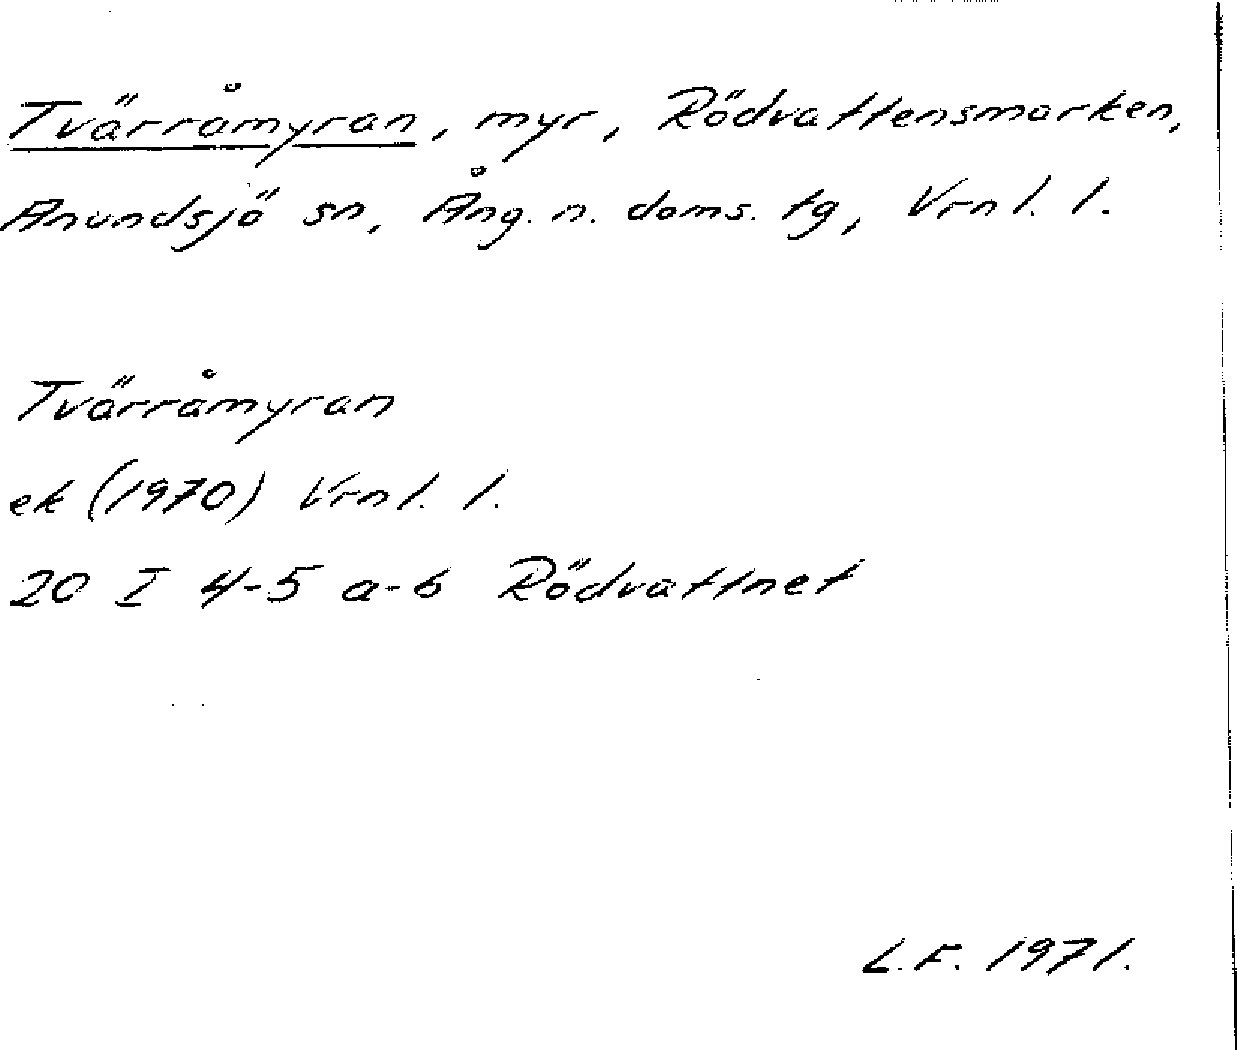 Tvärråmyran, myr, Rödvattensmarken,
Anundsjö sn, Ång. n. doms. tg, Vrnl. l.
Tvärråmyran
ek (1970) Vrnl. l.
20 I 4-5 a-b Rödvattnet
L.F. 1971.